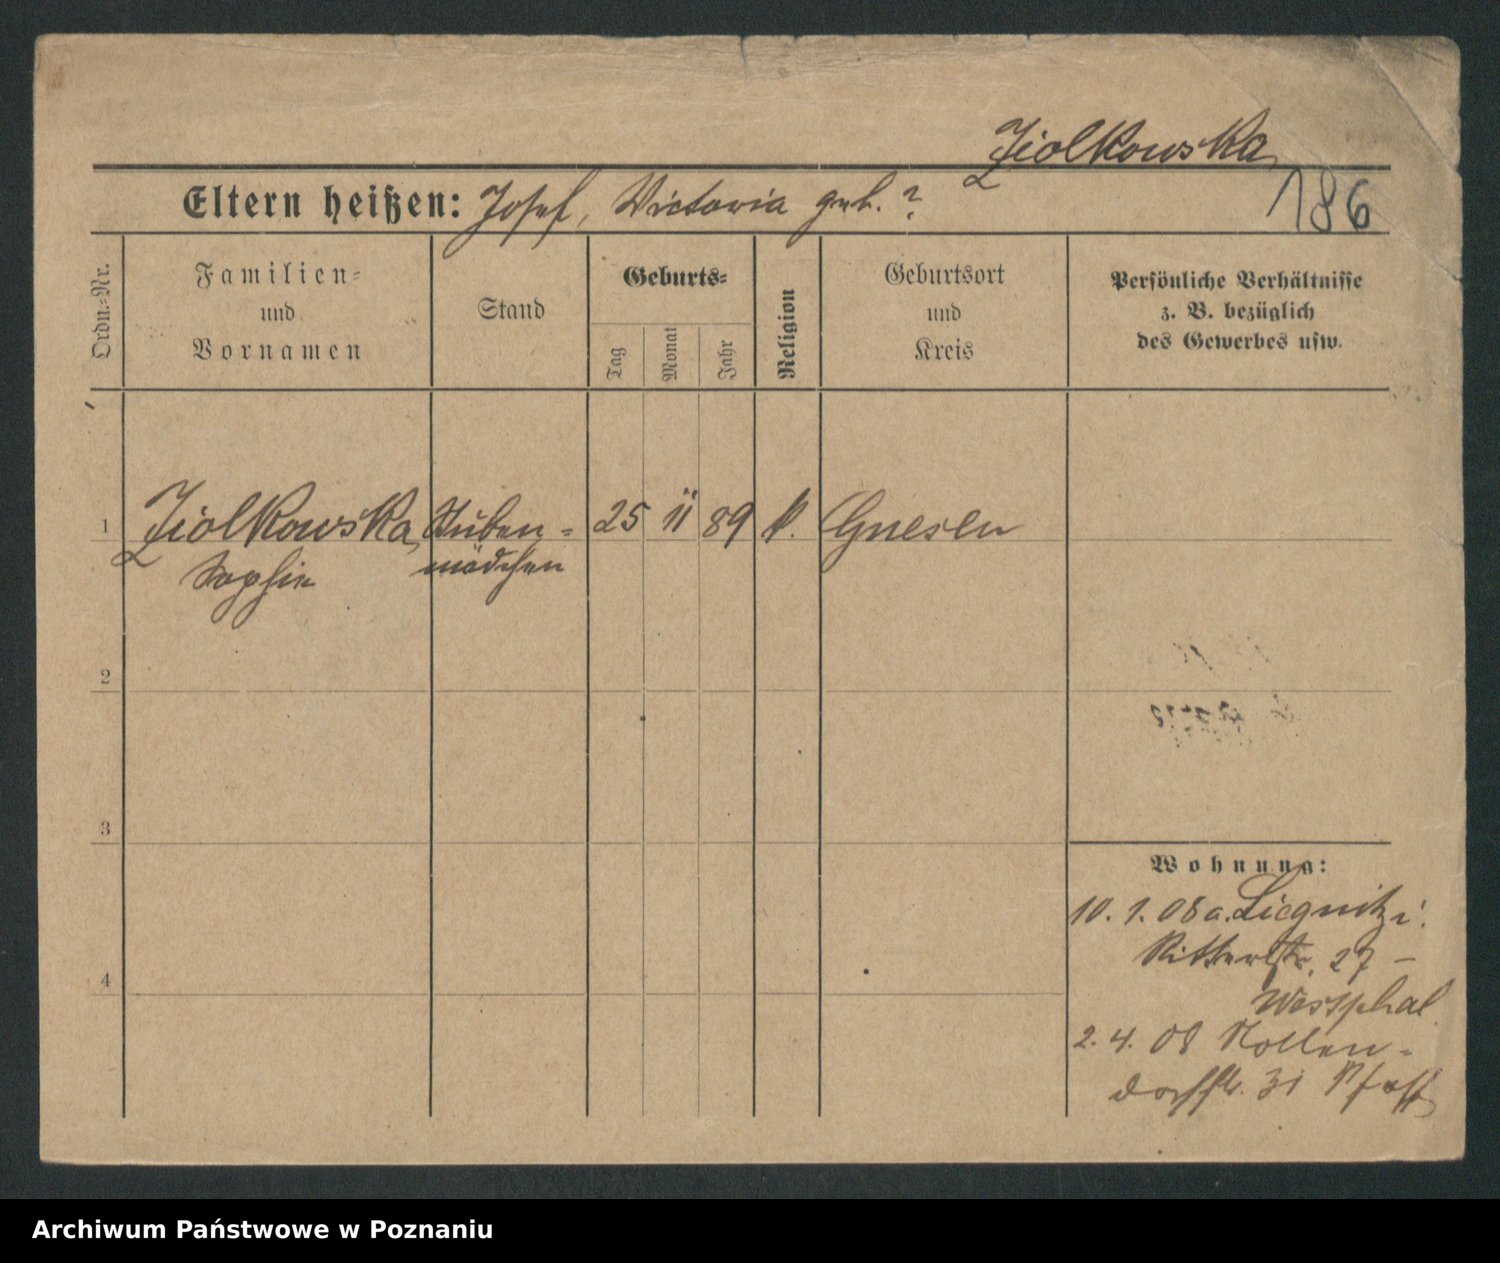 Ziolkowska
Eltern heißen: Josef, Victoria geb. ?
186
Ordn.=Nr.
Familien=
und
Vornamen
Stand
Geburts=
Tag
Monat
Jahr
Religion
Geburtsort
und
Kreis
Persönliche Verhältnisse
z. B. bezüglich
des Gewerbes usw.
1 Ziolkowska Stuben= 25 11 89 k. Gnesen
Sophie mädchen
2
3
4
Wohnung:
10. 1. 08 a. Liegnitz
Ritterstr. 27 –
Westphal
2. 4. 08 Nollen=
dorfstr. 31 Pfaff
Archiwum Państwowe w Poznaniu